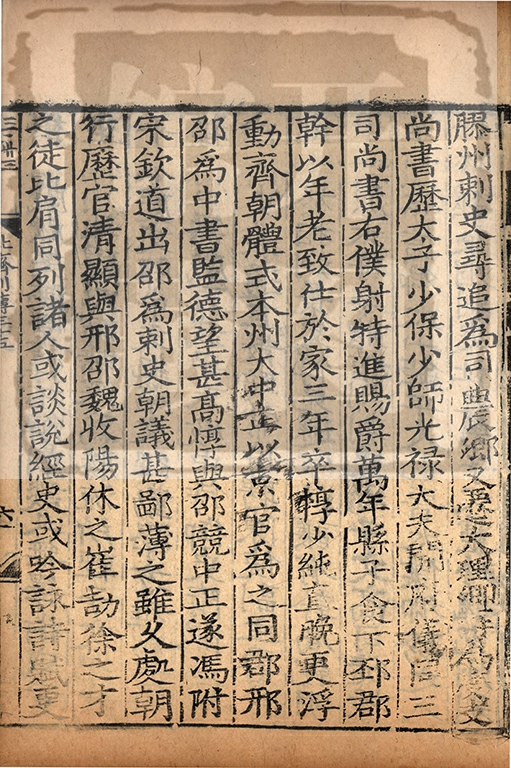 滕州刺史尋追爲司農卿又爲大理卿
尚書歷太子少保少師光禄大夫開府儀同三
司尚書右僕射特進賜爵萬年縣子食下邳郡
幹以年老致仕於家三年卒惇少純直晚更浮
動齊朝體式本州大中正以京官爲之同郡邢
邵爲中書監德望甚高惇與邵競中正遂馮附
宋欽道出邵爲刺史朝議甚鄙薄之雖乆處朝
行歷官清顯與邢邵魏收陽休之崔劼徐之才
之徒比肩同列諸人或談説經史或吟詠詩賦更
六